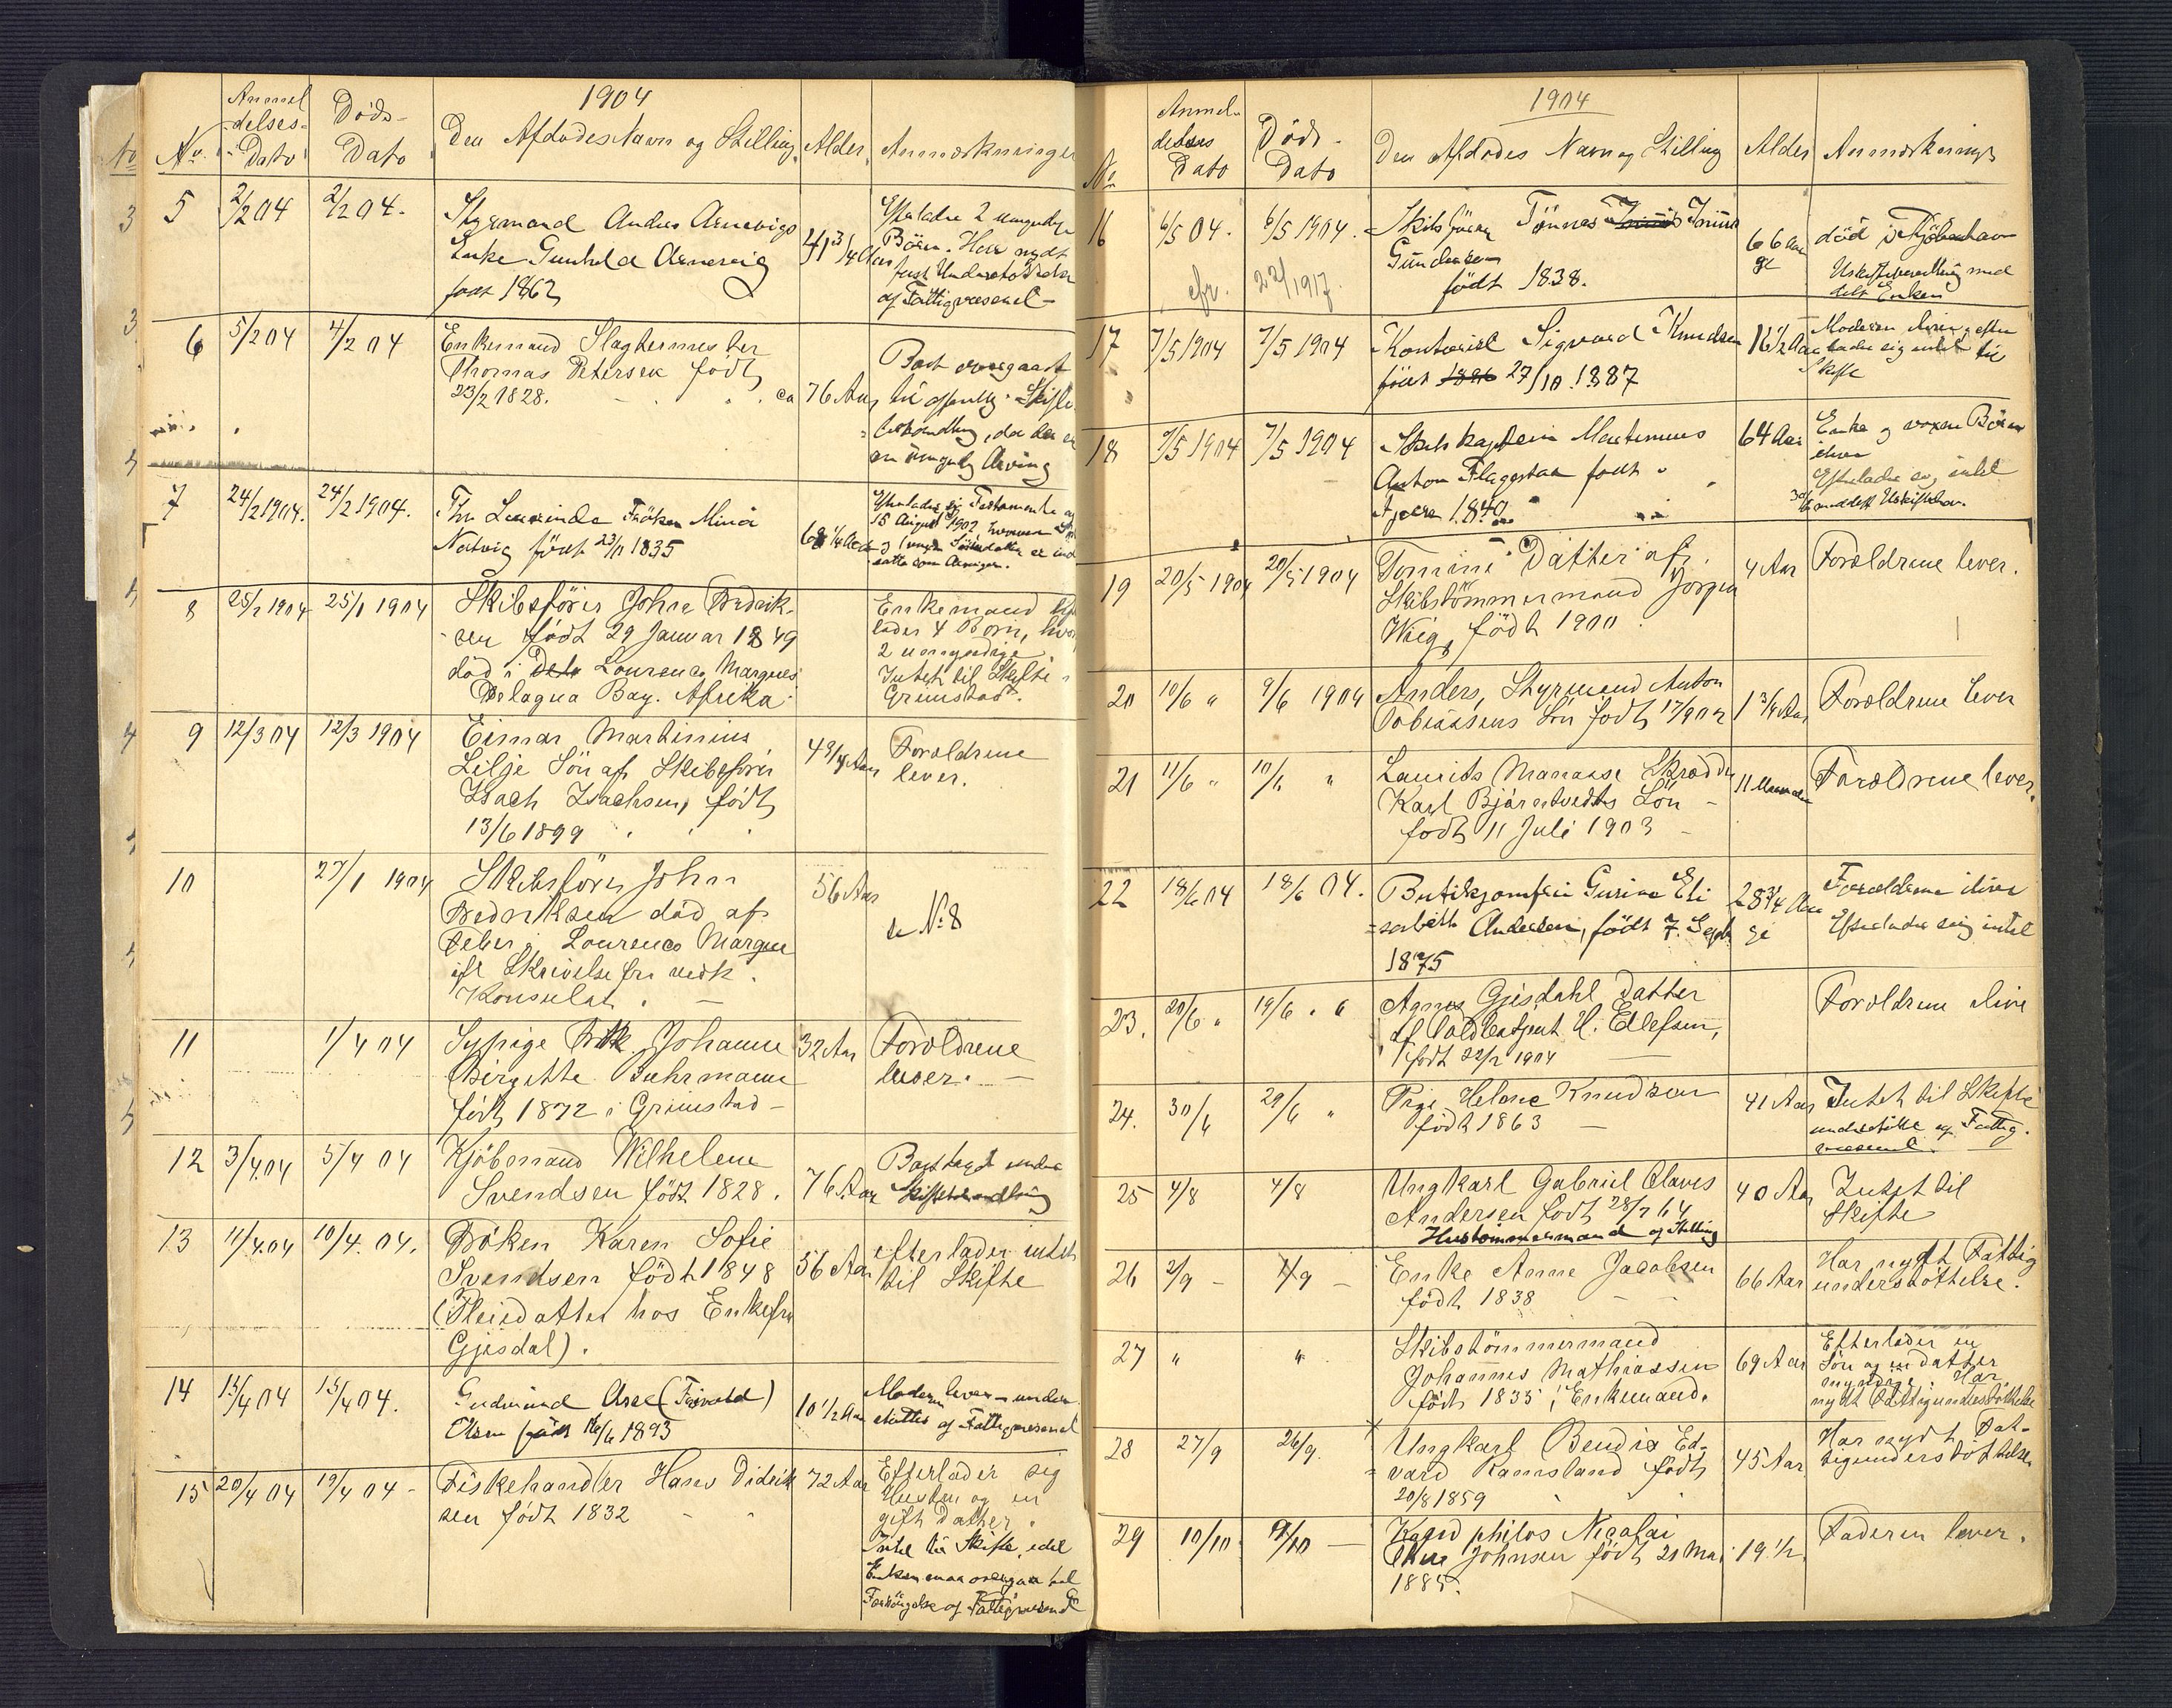 1904
No
Anmel
-delses-
Dato
Døds-
Dato
Den Afdødes Navn og Stilling
Alder
Anmærkninger
5
2/2 04
2/2 04.
Styrmand Anders Arnevigs
Enke Gunhild Arnevig
født 1862
41 3/4 Aar
Efterlader 2 umyndige
Börn. Har nydt
fast Understöttelse
af Fattigvæsenet -
6
5/2 04
4/2 04
Enkemand Slagtermester
Thomas Petersen født
23/2 1828.
ca 76 Aar
Boet overgaaet
til offentlig Skifte
behandling, da der er
en umyndig Arving
7
24/2 1904.
24/2 1904.
Frk Laurinde Fröken Mina
Natvig född 23/11 1835
68 1/4 Aar
Efterlader sig Testamente af
15 August 1902, hvorved
er ind
satte som Arvinger.
8
25/2 1904
25/1 1904
Skibsförer John Fredrik-
sen født 29 Januar 1849
död i Lourenco Marques
Delagoa Bay. Afrika.
Enkemand efter
lader 4 Börn, hvoraf
2 umyndige.
Intet til Skifte i
Grimstad.
9
12/3 04
12/3 1904
Einar Martinius
Lilje Sön af Skibsförer
Isach Isachsen, født
13/6 1899
4 3/4 Aar
Forældrene
lever.
10
27/1 1904
Skibsförer John
Fredriksen död af
Feber i Lourenco Marques
ifl Skrivelse fra vedk.
Konsulat.
56 Aar
se No 8
11
1/4 04
Sypige Johanne
Birgitte Fuhrmann
født 1872 i Grimstad -
32 Aar
Forældrene
lever. -
12
3/4 04
5/4 04
Kjöbmand Wilhelm
Svendsen född 1828.
76 Aar
Boet tagt under
Skiftebehandling
13
11/4 04
10/4. 04.
Fröken Karen Sofie
Svendsen född 1848
(Pleiedatter hos Enkefru
Gjesdal).
56 Aar
efterlader intet
til Skifte
14
15/4 04
15/4 04.
Gudmund Arel (Frivold)
Olsen född 16/6 1893
10 1/2 Aar
Moderen lever - under-
støttes af Fattigvæsenet
15
20/4 04
19/4 04 -
Fiskehandler Hans Didrik
sen født 1832
72 Aar
Efterlader sig
Hustru og en
gift Datter.
Intet til Skifte, idet
Enken maa overgaa til
Forsörgelse af Fattigvæsenet
1904
No
Anmel-
delses
Dato
Døds-
Dato
Den Afdødes Navn og Stilling
Alder
Anmærkninger
16
6/5 04.
6/5 1904.
Skibsförer Tönnes
Gundersen
født 1838.
66 Aar
gl
död i Kjöbenhavn
Uskiftebevilling med
delt Enken
cfr. 22/1917.
17
7/5 1904
7/5 1904
Kontorist Sigvard Knudsen
född 1886 27/10 1887
16 1/2 Aar
Moderen ilive, efter
lader sig intet til
Skifte
18
7/5 1904
7/5 1904
Skibskaptein Martinius
Anton Flaggstad født
1840
64 Aar
Enke og voxne Börn
ilive
Efterlader sig intet
meddelt Uskiftebev.
19
20/5 1904
20/5 1904
Tomine Datter af
Skibstömmermand Jörgen
Wiig, född 1900
4 Aar
Forældrene lever.
20
10/6 "
9/6 1904
Anders, Styrmand Anton
Tobiassens Sön født 17/9 02
1 3/4 Aar
Forældrene lever
21
11/6 "
10/6 "
Laurits Manasse Skrædder
Karl Bjärntvedts Sön -
født 11 Juli 1903 -
11 Maaneder
Forældrene lever.
22
18/6 04
18/6 04.
Butikjomfru Gurine Eli
=sabeth Andersen, född 7. Septb
1875
28 3/4 Aar
gl
Forældrene ilive
Efterlader sig intet
23.
20/6 "
19/6 . "
Agnes Gjesdahl Datter
af Toldbetjent H. Ellefsen,
född 22/2 1904
Forældrene ilive
24.
30/6
29/6 "
Pige Helene Knudsen
född 1863 -
41 Aar
Intet til Skifte
understöttet af Fattig-
væsenet.
25
4/8
4/8
Ungkarl Gabriel Olaves
Andersen født 28/7 64
Hustömmermand af Stilling
40 Aar
Intet til
Skifte
26
2/9 -
1/9 -
Enke Anne Jacobsen
född 1838
66 Aar
Har nydt Fattig
understöttelse.
27
"
"
Skibstömmermand
Johannes Mathiassen
född 1835, Enkemand.
69 Aar
Efterlader en
Sön og en datter
myndige. Har
nydt Fattigunderstöttelse
28
27/9
26/9.
Ungkarl Bendix Ed-
vard Ramsland født
20/8 1859
45 Aar
Har nydt Fat-
tigunderstöttelse
29
10/10.
9/10 -
Kand philos Nicolai
Johnsen født 21 Mai
1885.
19 1/2
Faderen lever.